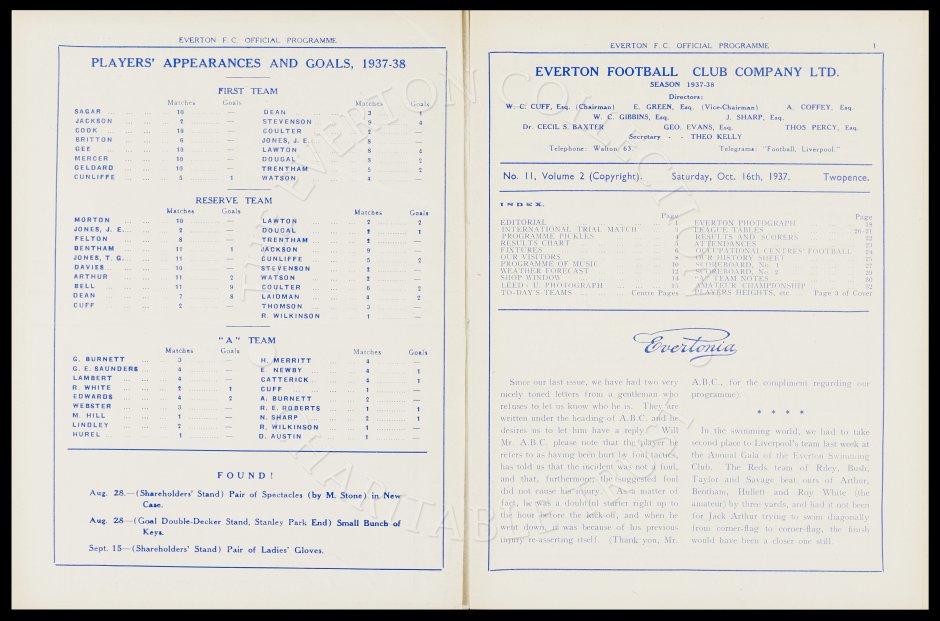 EVERTON F.C. OFFICIAL PROGRAMME
PLAYERS' APPEARANCES AND GOALS, 1937-38
FIRST TEAM
Matches Goals
SAGAR ... ... 10 —
JACKSON ... ... 2 —
COOK ... ... 10 —
BRITTON ... ... 6 —
GEE ... ... 10 —
MERCER ... ... 10 —
GELDARD ... ... 10 —
CUNLIFFE ... ... 5 1
Matches Goals
DEAN ... ... 3 1
STEVENSON ... ... 9 4
COULTER ... ... 2 —
JONES, J. E. ... 8 —
LAWTON ... ... 8 4
DOUGAL ... ... 8 2
TRENTHAM ... ... 5 2
WATSON ... ... 4 —
RESERVE TEAM
Matches Goals
MORTON ... ... 10 —
JONES, J. E. ... 2 —
FELTON ... ... 8 —
BENTHAM ... ... 11 1
JONES, T. G. ... 11 —
DAVIES ... ... 10 —
ARTHUR ... ... 11 2
BELL ... ... 11 9
DEAN ... ... 7 8
CUFF ... ... 2 —
Matches Goals
LAWTON ... ... 2 2
DOUGAL ... ... 2 1
TRENTHAM ... ... 2 —
JACKSON ... ... 9 —
CUNLIFFE ... ... 5 2
STEVENSON ... 2 —
WATSON ... ... 2 —
COULTER ... ... 6 2
LAIDMAN ... ... 4 2
THOMSON ... ... 3 —
R. WILKINSON ... 1 —
"A" TEAM
Matches Goals
G. BURNETT ... 3 —
G. E. SAUNDERS ... 4 —
LAMBERT ... ... 4 —
R. WHITE ... ... 2 1
EDWARDS ... ... 4 2
WEBSTER ... ... 3 —
M. HILL ... ... 1 —
LINDLEY ... ... 2 —
HUREL ... ... 1 —
Matches Goals
H. MERRITT ... 4 —
E. NEWBY ... ... 4 1
CATTERICK ... ... 4 1
CUFF ... ... 1 —
A. BURNETT ... 2 —
R. E. ROBERTS ... 1 1
N. SHARP ... ... 2 1
R. WILKINSON ... 1 —
D. AUSTIN ... ... 1 —
FOUND!
Aug. 28—(Shareholders' Stand) Pair of Spectacles (by M. Stone) in New
Case.
Aug. 28—(Goal Double-Decker Stand, Stanley Park End) Small Bunch of
Keys.
Sept. 15—(Shareholders' Stand) Pair of Ladies' Gloves.
EVERTON F.C. OFFICIAL PROGRAMME 1
EVERTON FOOTBALL CLUB COMPANY LTD.
SEASON 1937-38
Directors:
W. C. CUFF, Esq. (Chairman) E. GREEN, Esq. (Vice-Chairman) A. COFFEY, Esq.
W. C. GIBBINS, Esq. J. SHARP, Esq.
Dr. CECIL S. BAXTER GEO. EVANS, Esq. THOS PERCY, Esq.
Secretary - - THEO KELLY
Telephone: Walton 63. Telegrams: "Football, Liverpool."
No. 11, Volume 2 (Copyright). Saturday, Oct. 16th, 1937. Twopence.
INDEX.
Page
EDITORIAL
INTERNATIONAL TRIAL MATCH
PROGRAMME PICKLES
RESULTS CHART
FIXTURES
OUR VISITORS 8
PROGRAMME OF MUSIC 10
WEATHER FORECAST 12
SHOP WINDOW 14
LEED - U. PHOTOGRAPH 15
TO-DAY'S TEAMS Centre Pages
Page
EVERTON PHOTOGRAPH
LEAGUE TABLES 20-21
RESULTS AND SCORERS 22
ATTENDANCES
OCCUPATIONAL CENTRES' FOOTBALL
OUR HISTORY SHEET
SCOREBOARD, No. 1
SCOREBOARD, No. 2
"A" TEAM NOTES
AMATEUR CHAMPIONSHIP 32
PLAYERS HEIGHTS, etc. Page 3 of Cover
Evertonia
Since our last issue, we have had two very
nicely toned letters from a gentleman who
refuses to let us know who he is. They are
written under the heading of A.B.C. and he
desires us to let him have a reply. Will
Mr. A.B.C. please note that the player he
refers to as having been hurt by foul tactics,
has told us that the incident was not a foul,
and that, furthermore, the suggested foul
did not cause his injury. As a matter of
fact, he was a doubtful starter right up to
the hour before the kick-off, and when he
went down, it was because of his previous
injury re-asserting itself. (Thank you, Mr.
A.B.C., for the compliment regarding our
programme).
* * * *
In the swimming world, we had to take
second place to Liverpool's team last week at
the Annual Gala of the Everton Swimming
Club. The Reds team of Riley, Bush,
Taylor and Savage beat ours of Arthur,
Bentham, Hullett and Roy White (the
amateur) by three yards, and had it not been
for Jack Arthur trying to swim diagonally
from corner-flag to corner-flag, the finish
would have been a closer one still.
THE EVERTON COLLECTION
CHARITABLE TRUST